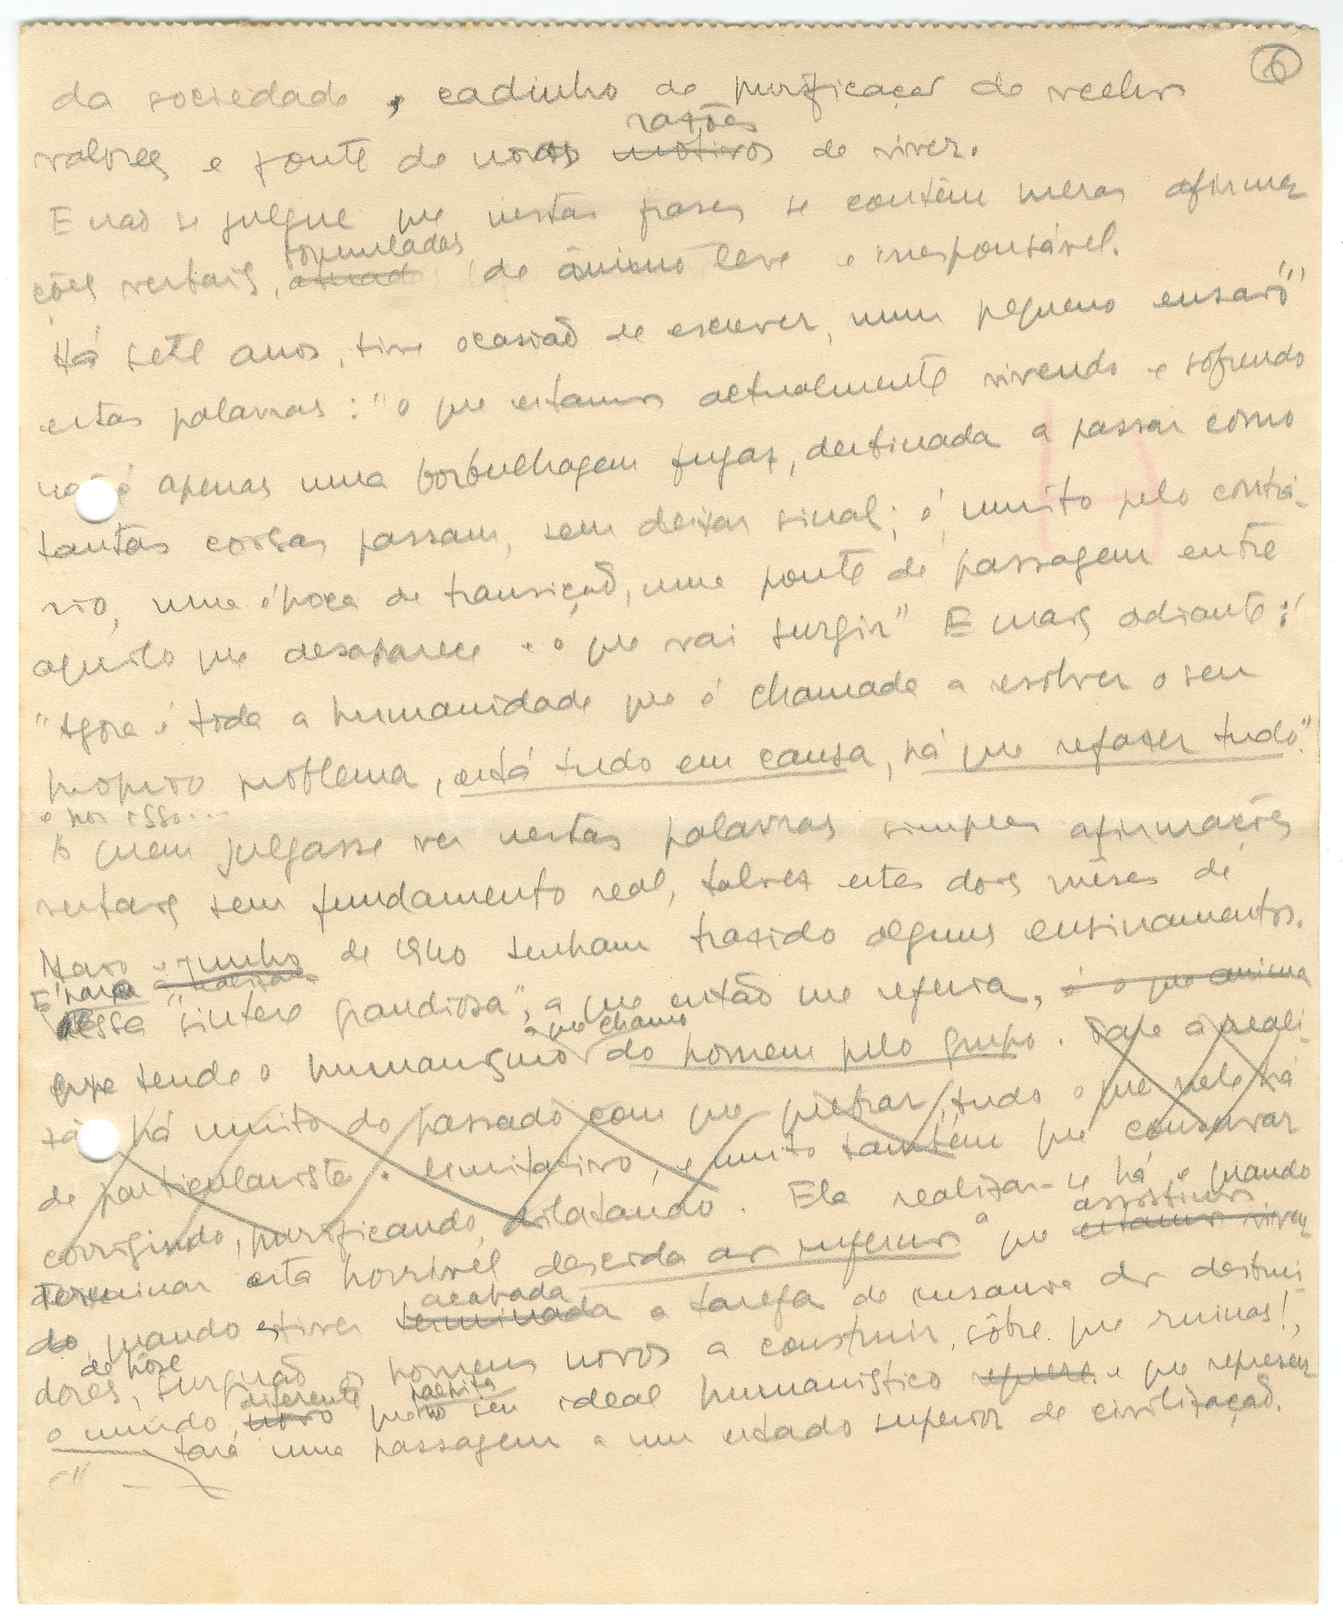 6
da sociedade, cadinho de purificação de velhos
razões
valores e fonte de novas motivos de viver.
E não se julgue que nestas frases se contêm meras afirma
formuladas
ções verbais, de ânimo leve e irresponsável.
Há sete anos, tive ocasião de escrever, num pequeno ensaio
estas palavras: "o que estamos actualmente vivendo e sofrendo
não é apenas uma borbulhagem fugaz, destinada a passar como
tantas coisas passam, sem deixar sinal; é, muito pelo contrá-
rio, uma época de transição, uma ponte de passagem entre
aquilo que desaparece e o que vai surgir" E mais adiante:
"Agora é toda a humanidade que é chamada a resolver o seu
próprio problema, está tudo em causa, há que refazer tudo".
e por isso...
A quem julgasse ver nestas palavras simples afirmações
verbais sem fundamento real, talvez estes dois mêses de
Maio e junho de 1940 tenham trazido alguns ensinamentos.
É para
essa "síntese grandiosa", a que então me referia, é o que anima
a que chamo
que tende o humanismo do homem pelo grupo. Para a reali-
zá há muito do passado com que quebrar, tudo o que nele há
de particularista e limitativo, e muito também que conservar
corrigindo, purificando, dilatando. Ela realizar-se há e quando
assistimos
terminar esta horrível descida aos infernos a que estamos viven
acabada
do, quando estiver terminada a tarefa de insânia dos destrui
de hoje
dores, surgirão os homens novos a construir, sôbre que ruinas!,
diferente
o mundo novo que no seu ideal humanístico e que represen
tará uma passagem a um estado superior de civilização.